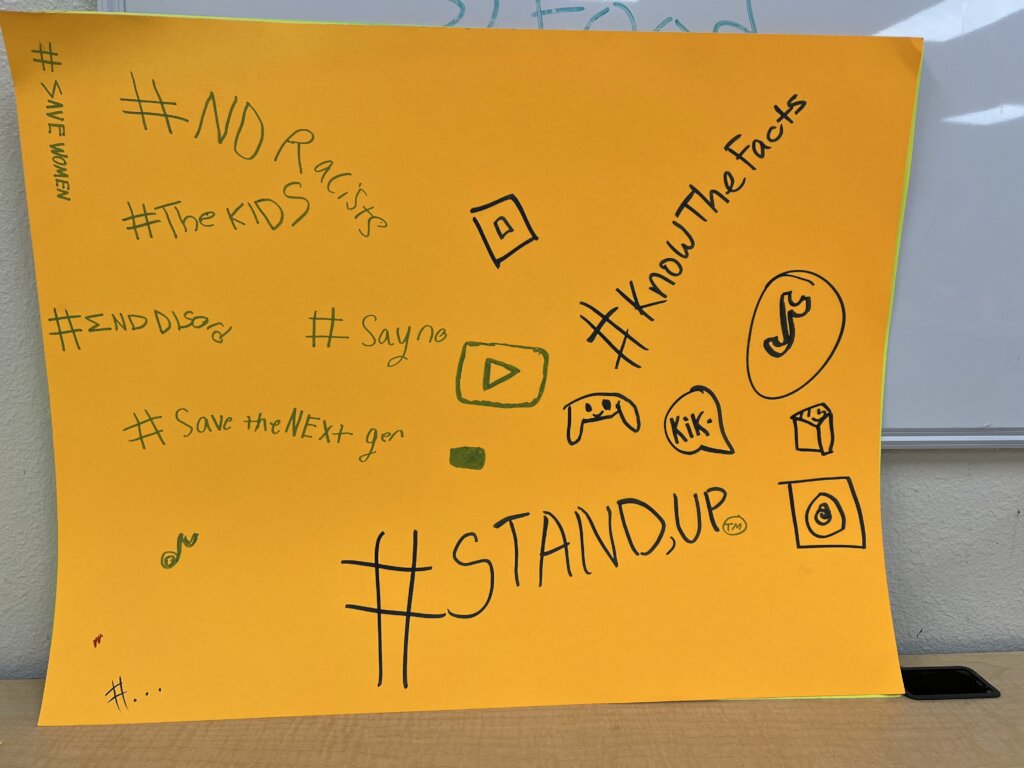 #SAVE WOMEN
#NO Racists
#The KIDS
#KnowTheFacts
#END DISord
#Say no
KiK
#Save theNExt gen
#STAND,UP TM
#...